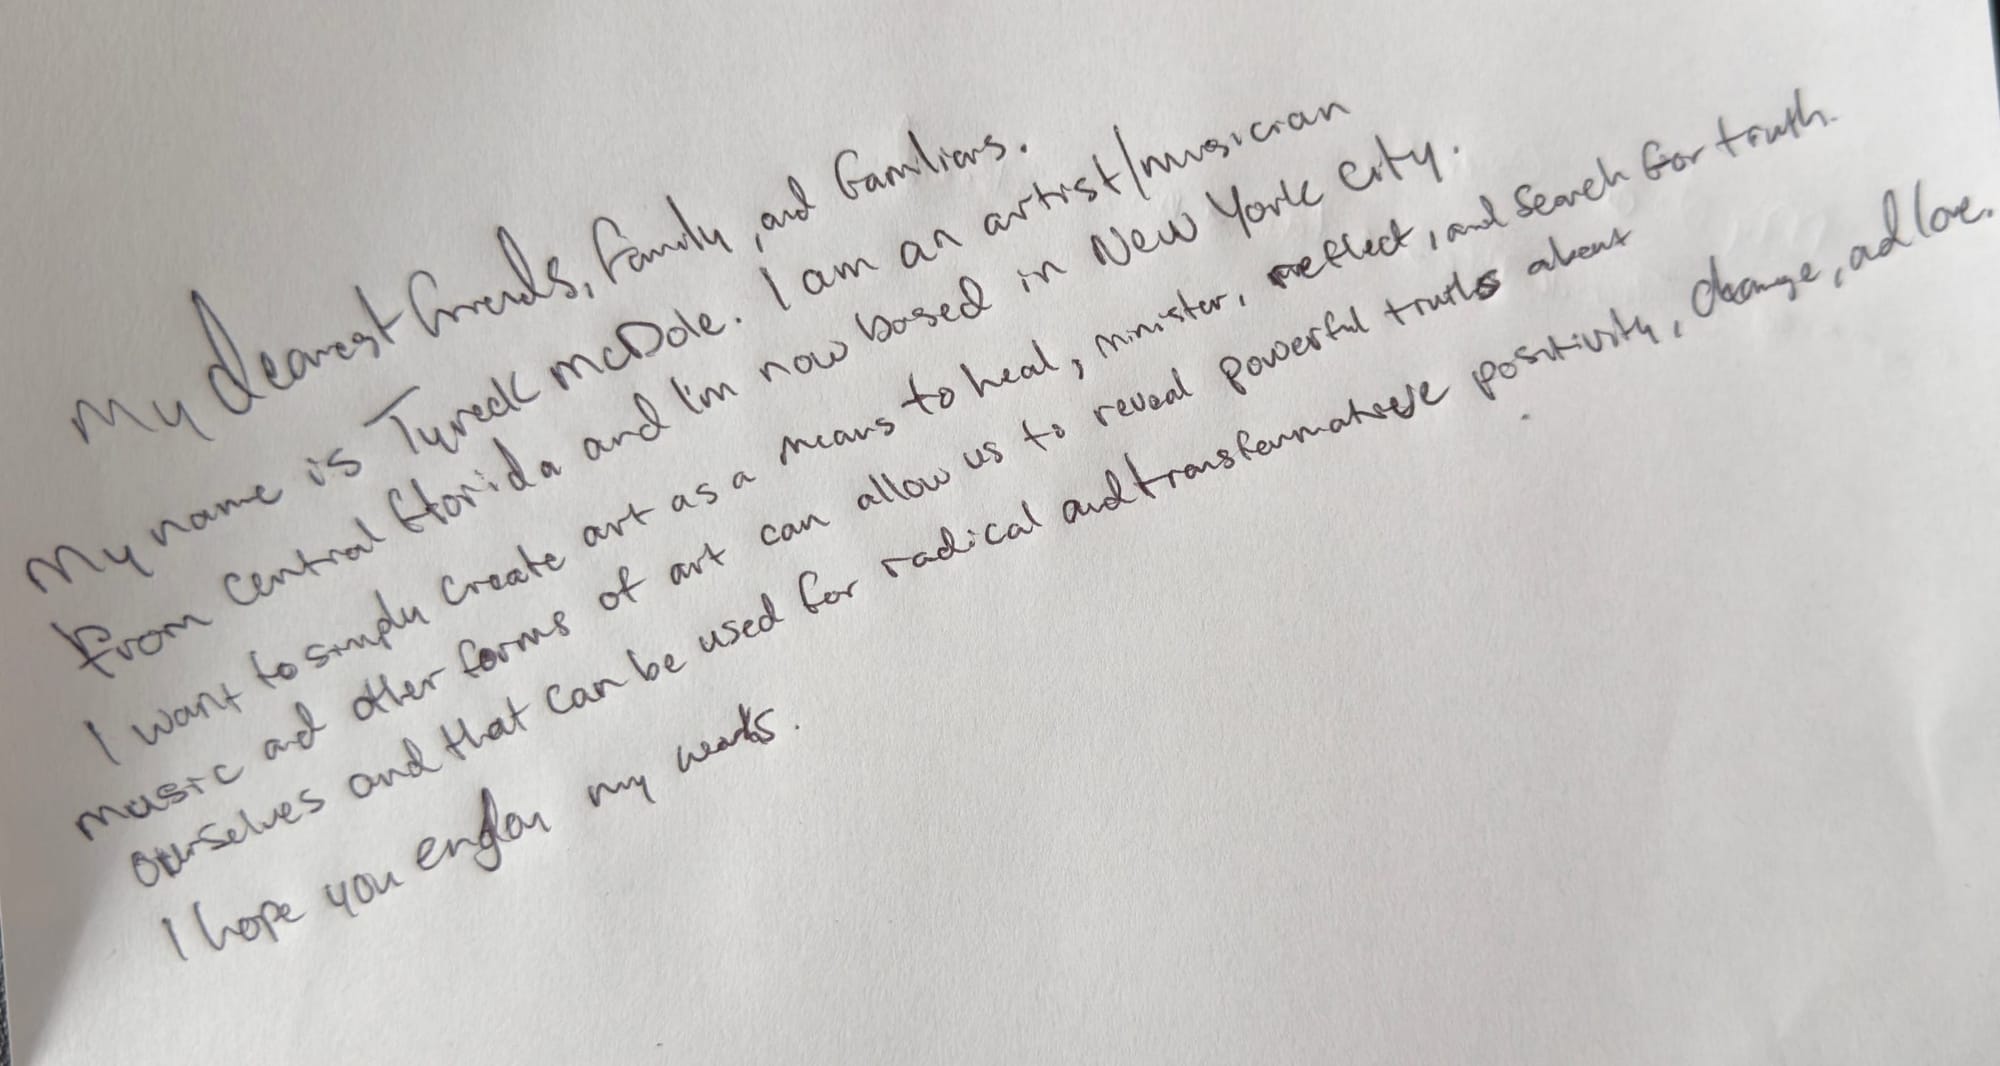 My dearest friends, family, and familiars.
My name is Tyreek mcDole. I am an artist/musician
from central florida and I'm now based in New York City.
I want to simply create art as a means to heal, minister, reflect, and search for truth.
music and other forms of art can allow us to reveal powerful truths about
ourselves and that can be used for radical and transformative positivity, change, and love.
I hope you enjoy my works.